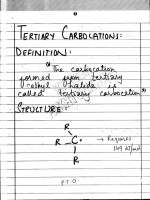 TERTIARY CARBOCATIONS:
DEFINITION:
"The carbocation
formed upon tertiary
alkyl halide is
called tertiary carbocation"
STRUCTURE:
R
R - C → Requires
R
P.T.O